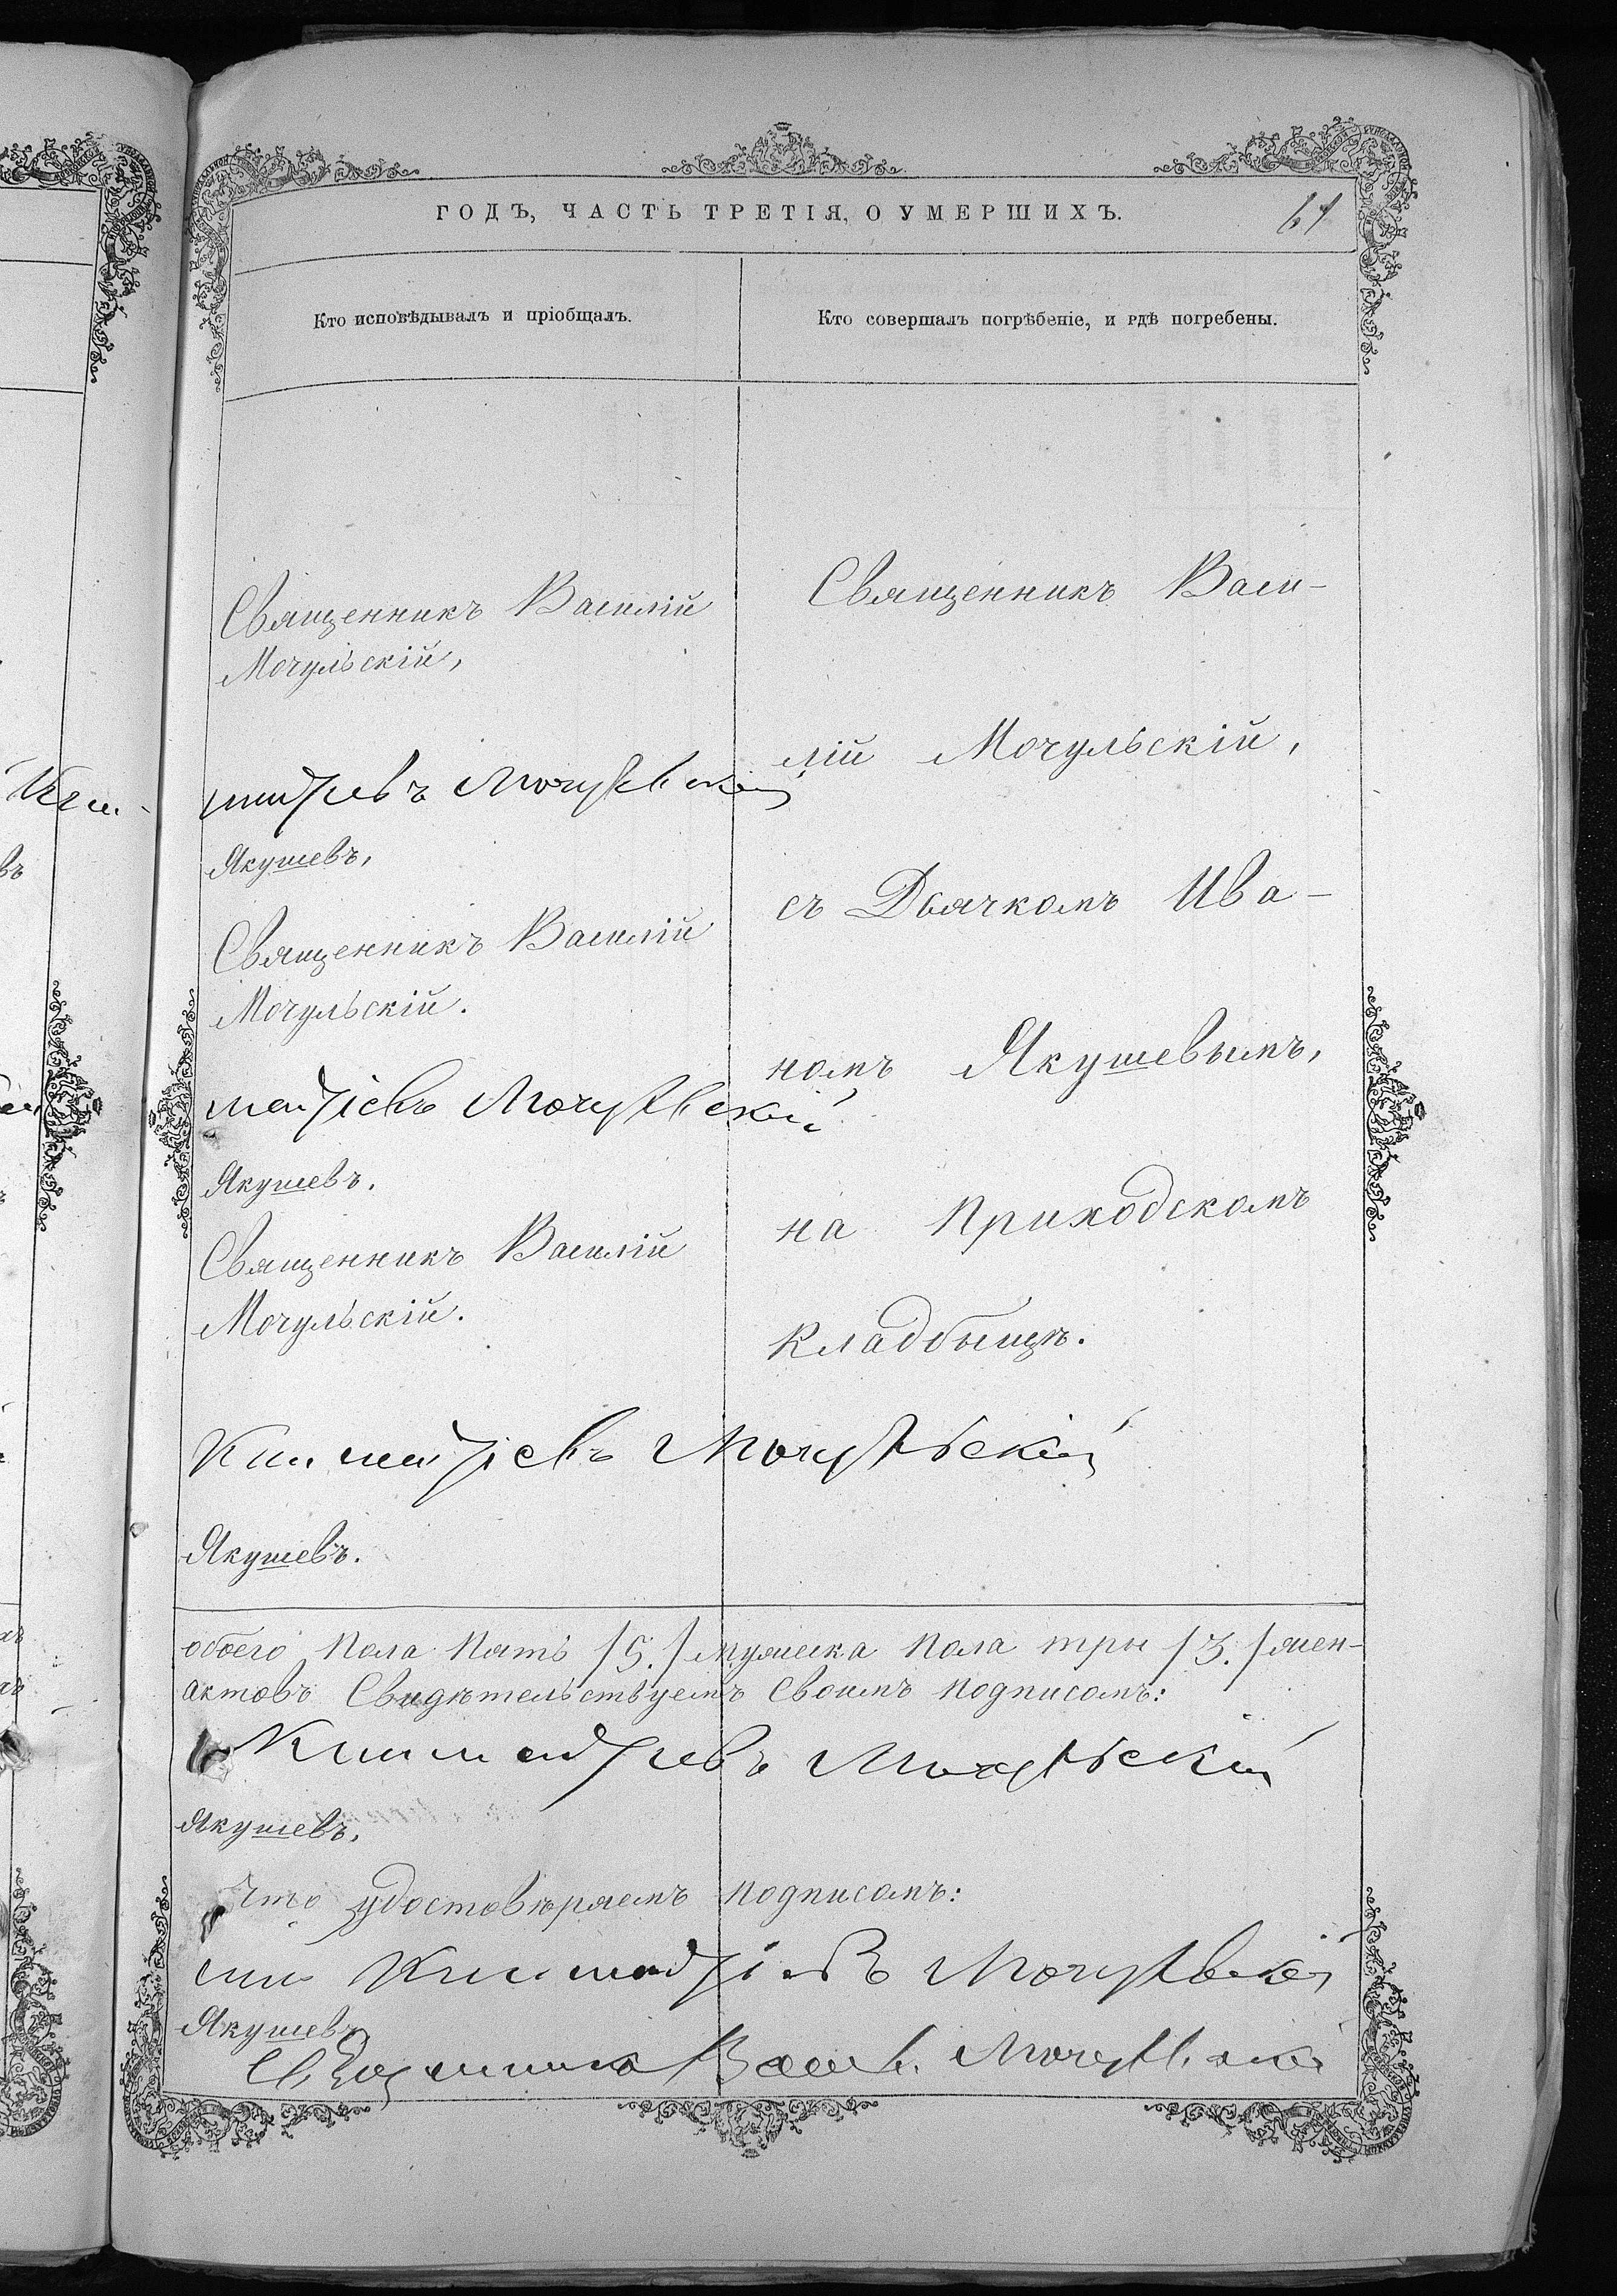 ГОДЪ, ЧАСТЬ ТРЕТІЯ, О УМЕРШИХЪ.
61
Кто исповѣдывалъ и пріобщалъ.
Кто совершалъ погрѣбеніе, и гдѣ погребены.
Священникъ Василій
Мочульскій,
Мочульскій
Якушевъ,
Священникъ Василій
Мочульскій.
Мочульскій
Якушевъ.
Священникъ Василій
Мочульскій.
Священникъ Васи-
лій Мочульскій,
съ Дьячкомъ Ива-
номъ Якушевымъ,
на Приходскомъ
Кладбыщѣ.
Мочульскій
Якушевъ.
обоего Пола Пять /5./ мужеска Пола три /3./ жен-
актовъ Свидѣтельствуемъ Своимъ Подписомъ:
Мочульскій
Якушевъ.
Что удостовѣряемъ Подписомъ:
Мочульскій
Якушевъ
Мочульскій